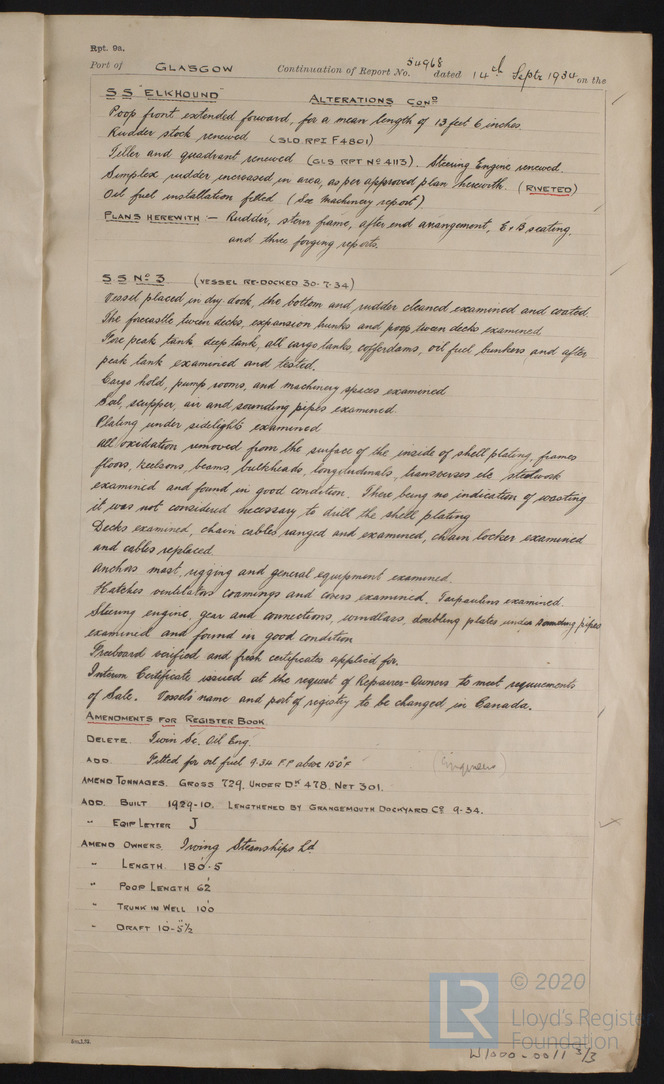 Rpt. 9a.
Port of GLASGOW Continuation of Report No. 54968 dated 14th Septr 1934 on the
S S "ELKHOUND"
ALTERATIONS COND
Poop front extended forward, for a mean length of 13 feet 6 inches.
Rudder stock renewed (SLD RPT F4801)
Tiller and quadrant renewed (GLS RPT No 4113). Steering Engine renewed.
Simplex rudder increased in area, as per approved plan herewith. (RIVETED)
Oil fuel installation fitted (See Machinery report)
PLANS HEREWITH :- Rudder, stern frame, after end arrangement, E & B seating,
and three forging reports.
S S No 3 (VESSEL RE-DOCKED 30-7-34)
Vessel placed in dry dock the bottom and rudder cleaned examined and coated.
The forecastle tween decks, expansion trunks and poop tween decks examined
Fore peak tank deep tank, all cargo tanks, cofferdams, oil fuel bunkers and after
peak tank examined and tested.
Cargo hold, pump rooms, and machinery spaces examined
Coal, scupper, air and sounding pipes examined
Plating under sidelights examined
All oxidation removed from the surface of the inside of shell plating, frames
floors, keelsons, beams, bulkheads, longitudinals, transverses etc steelwork
examined and found in good condition. There being no indication of wasting
it was not considered necessary to drill the shell plating
Decks examined, chain cables ranged and examined, chain locker examined
and cables replaced.
Anchors mast, rigging and general equipment examined.
Hatches ventilators coamings and covers examined. Tarpaulins examined.
Steering engine, gear and connections, windlass, doubling plates under sounding pipes
examined and found in good condition
Freeboard verified and fresh certificates applied for.
Interim Certificate issued at the request of Repairer-Owners to meet requirements
of Sale. Vessels name and port of registry to be changed in Canada.
AMENDMENTS FOR REGISTER BOOK
DELETE. Twin Sc. Oil Eng.
ADD. Fitted for oil fuel 9.34 F.P. above 150°F (Engineers)
AMEND TONNAGES. GROSS 729. UNDER DK 478. NET 301.
ADD. BUILT 1929-10. LENGTHENED BY GRANGEMOUTH DOCKYARD Co 9-34.
" EQIP LETTER J
AMEND OWNERS. Irving Steamships Ld
" LENGTH. 180-5
" POOP LENGTH 62
" TRUNK IN WELL 100
" DRAFT 10-5½
© 2020
LR
Lloyd's Register
Foundation
W1000-0011 3/3